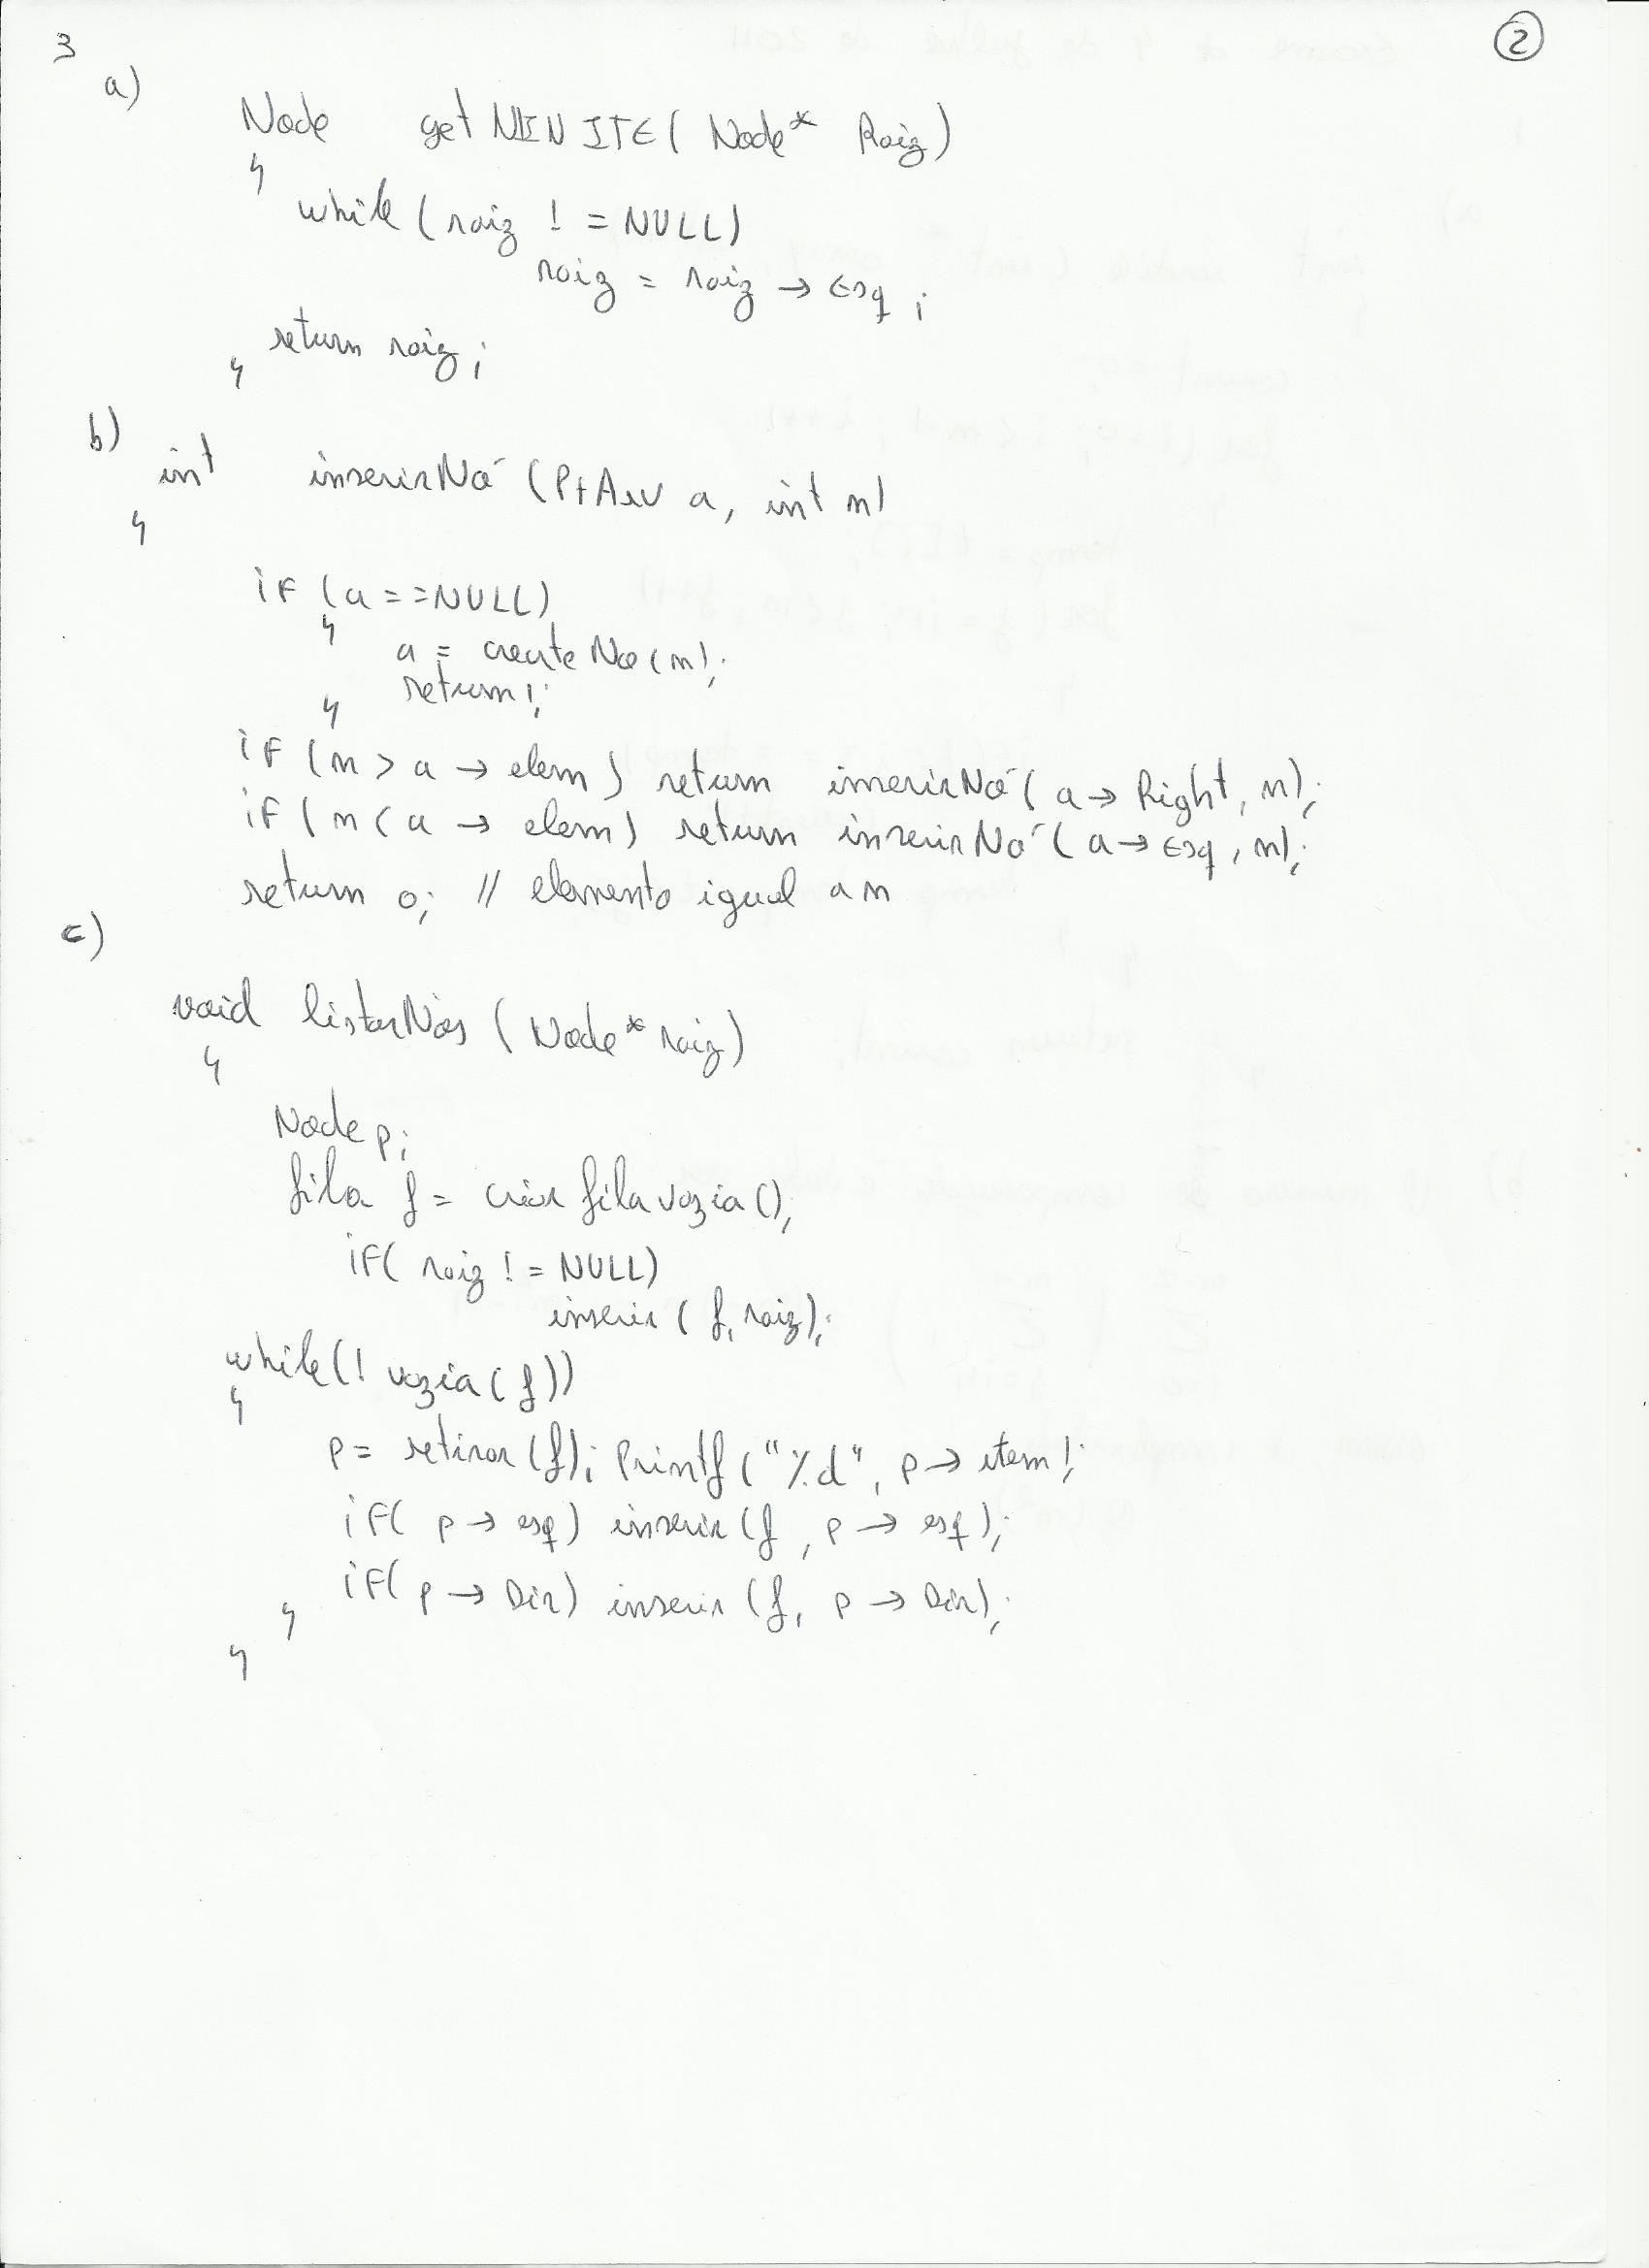 3
②
a)
Node getMINITE( Node* Raiz)
{
while (raiz != NULL)
raiz = raiz → Esq ;
return raiz ;
}
b)
int inserirNó (PtArv a, int n)
{
if (a == NULL)
{
a = createNo (n);
return 1;
}
if (n > a → elem) return inserirNó ( a → Right, n);
if (n < a → elem) return inserirNó ( a → Esq, n);
return 0; // elemento igual a n
c)
void listarNós ( Node* raiz)
{
Node p;
fila f = criar fila vazia ();
if( raiz != NULL)
inserir ( f, raiz);
while(! vazia ( f))
{
p = retirar (f); Printf ("%d", p → item);
if( p → esq) inserir (f , p → esq);
if( p → Dir) inserir (f, p → Dir);
}
}